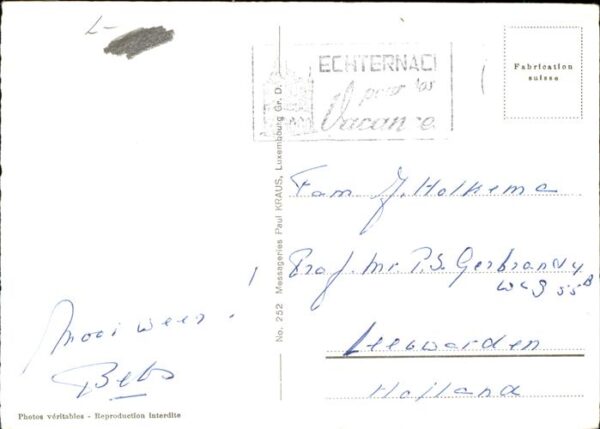 L-
ECHTERNACH
pour les
Vacances
Fabrication
suisse
No. 252 Messageries Paul KRAUS, Luxembourg Gr. D.
Fam J. Holkema
Prof. Mr. P.S. Gerbrandy
weg 55 B
Leeuwarden
Holland
Mooi weer!
Bebs
Photos véritables - Reproduction interdite